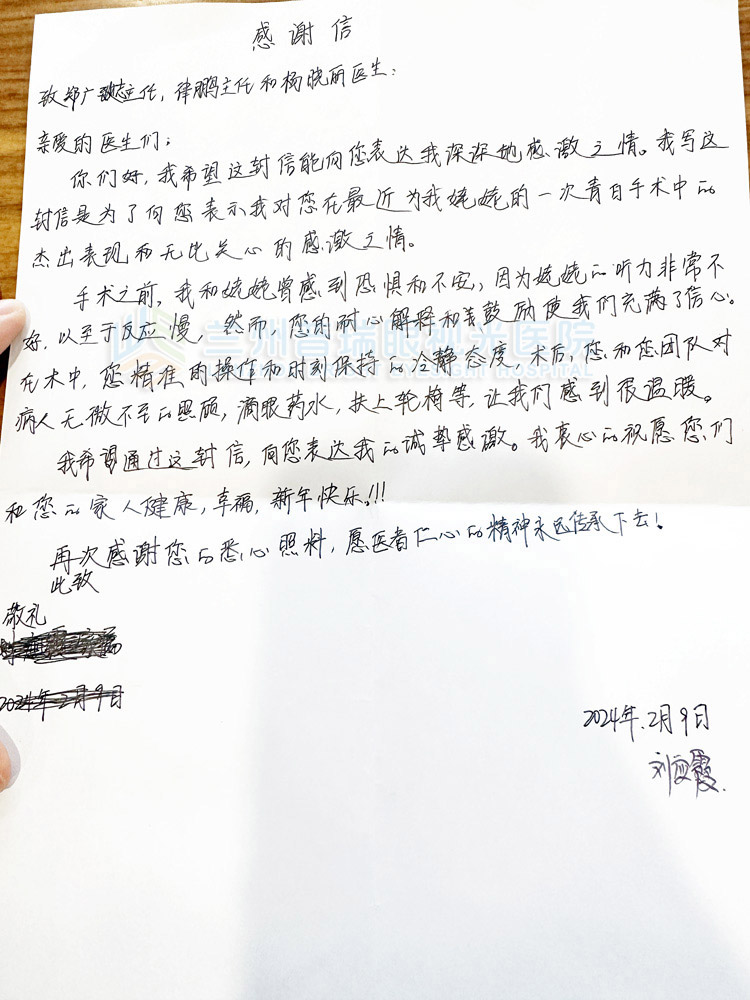 感谢信
致郑广瑛主任，律鹏主任和杨晓丽医生：
亲爱的医生们；
你们好，我希望这封信能向您表达我深深地感激之情。我写这
封信是为了向您表示我对您在最近为我姥姥的一次青白手术中的
杰出表现和无比关心的感激之情。
手术之前，我和姥姥曾感到恐惧和不安，因为姥姥的听力非常不
好，以至于反应慢，然而，您的耐心解释和鼓励使我们充满了信心。
在术中，您精准的操作和时刻保持的冷静态度，术后，您和您团队对
病人无微不至的照顾，滴眼药水，扶上轮椅等，让我们感到很温暖。
我希望通过这封信，向您表达我的诚挚感激。我衷心的祝愿您们
和您的家人健康，幸福，新年快乐!!!
再次感谢您的悉心照料，愿医者仁心的精神永远传承下去！
此致
敬礼
2024年2月9日
2024年.2月9日
刘应霞.
兰州普瑞眼视光医院